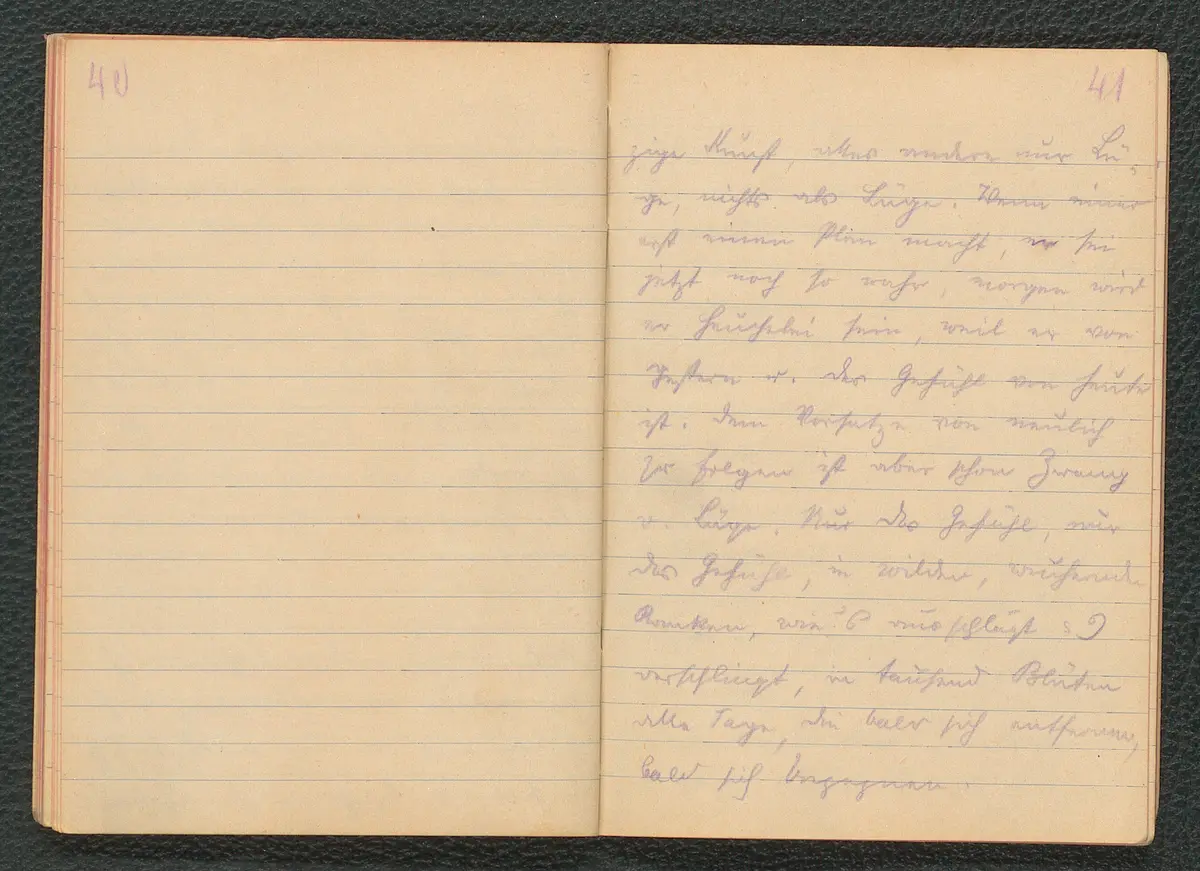 40
41
zige Kunst, alles andere nur Lü-
ge, nichts als Lüge. Wenn einer
erst einen Plan macht, er sei
jetzt noch so wahr, morgen wird
er Heuchelei sein, weil er von
gestern u. das Gefühl von heute
ist. Dem Vorsatze von neulich
zu folgen ist aber schon Zwang
u. Lüge. Nur das Gefühl, nur
das Gefühl, in wilden, wuchernden
Ranken, wie's ausschlägt
verschlingt, in tausend Blüten
alle Tage, die bald sich entfernen,
bald sich begegnen.